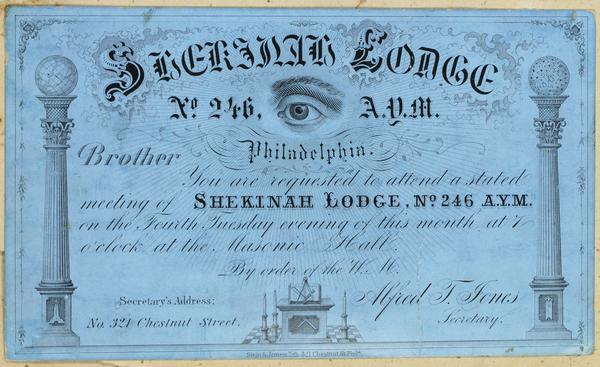 Shekinah Lodge
No. 246, A.Y.M.
Philadelphia.
Brother
You are requested to attend a stated
meeting of SHEKINAH LODGE, No 246 A.Y.M.
on the Fourth Tuesday evening of this month, at 7
o'clock, at the Masonic Hall.
By order of the W. M.
Secretary's Address:
No. 321 Chestnut Street.
Alfred T. Jones
Secretary.
Stein & Jones Lith. 321 Chestnut St. Phila.